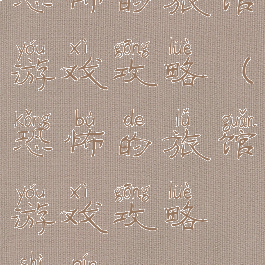 的旅馆
yóu xì gōng lüè
游戏攻略（
kǒng bù de lǚ guǎn
恐怖的旅馆
yóu xì gōng lüè
游戏攻略
shì pín